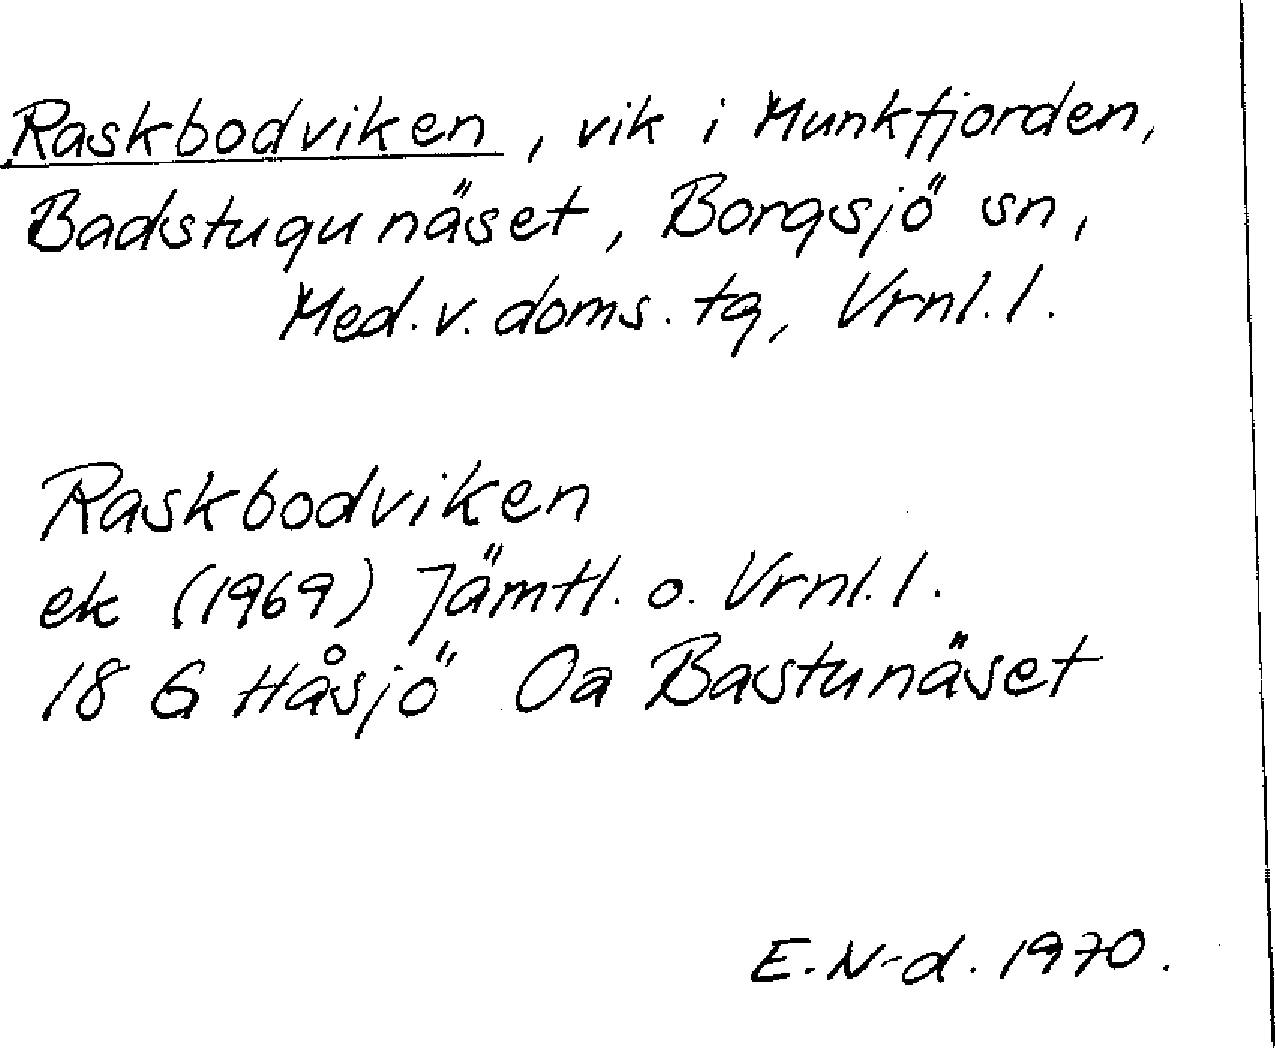 Raskbodviken, vik i Munkfjorden,
Badstugunäset, Borgsjö sn,
Med. v. doms. tg, Vrnl. l.
Raskbodviken
ek (1969) Jämtl. o. Vrnl. l.
18 G Håsjö Oa Bastunäset
E. N-d. 1970.